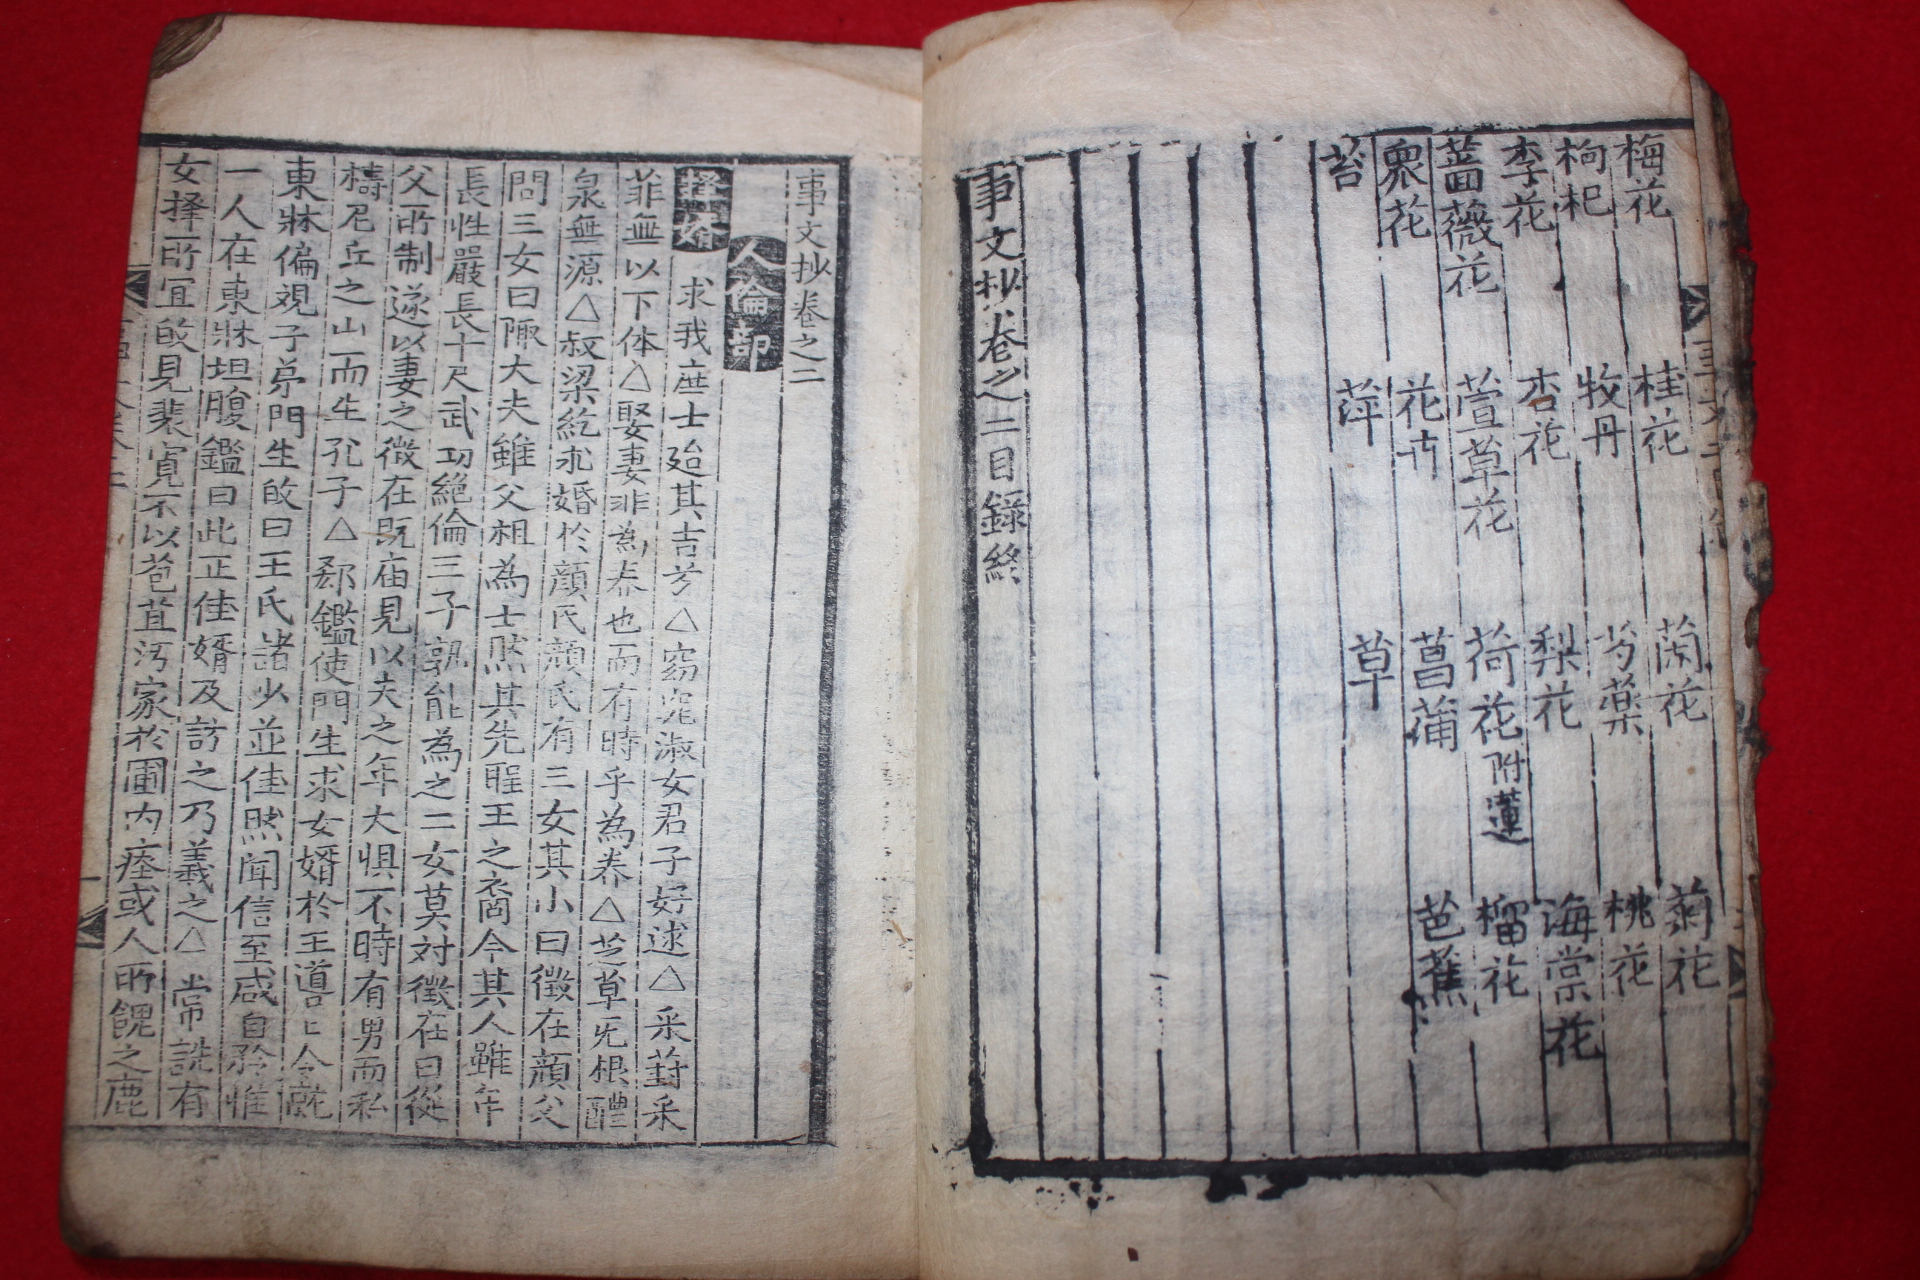 梅花 桂花 蘭花 菊花
枸杞 牧丹 芍藥 桃花
李花 杏花 梨花 海棠花
薔薇花 萱草花 荷花附蓮 榴花
衆花 花卉 菖蒲 芭蕉
苔 萍 草
事文抄卷之二目録終
事文抄卷之二
人倫部
擇婿 求我庶士殆其吉兮△窈窕淑女君子好逑△采葑采
菲無以下体△娶妻非為养也而有時乎為养△芝草无根醴
泉無源△叔梁紇求婚於顔氏顔氏有三女其小曰徵在顔父
問三女曰陬大夫雖父祖為士然其先聖王之裔今其人雖年
長性嚴長十尺武功絕倫三子孰能為之二女莫对徵在曰從
父所制遂以妻之徵在既庙見以夫之年大惧不時有男而私
禱尼丘之山而生孔子△郄鑑使門生求女婿於王導上令就
東牀偏視子弟門生皈曰王氏諸少並佳然闻信至咸自矜惟
一人在東牀坦腹鑑曰此正佳婿及訪之乃羲之△常詵有
女择所宜皈見裴寬不以苞苴污家於圃内瘞或人所餽之鹿